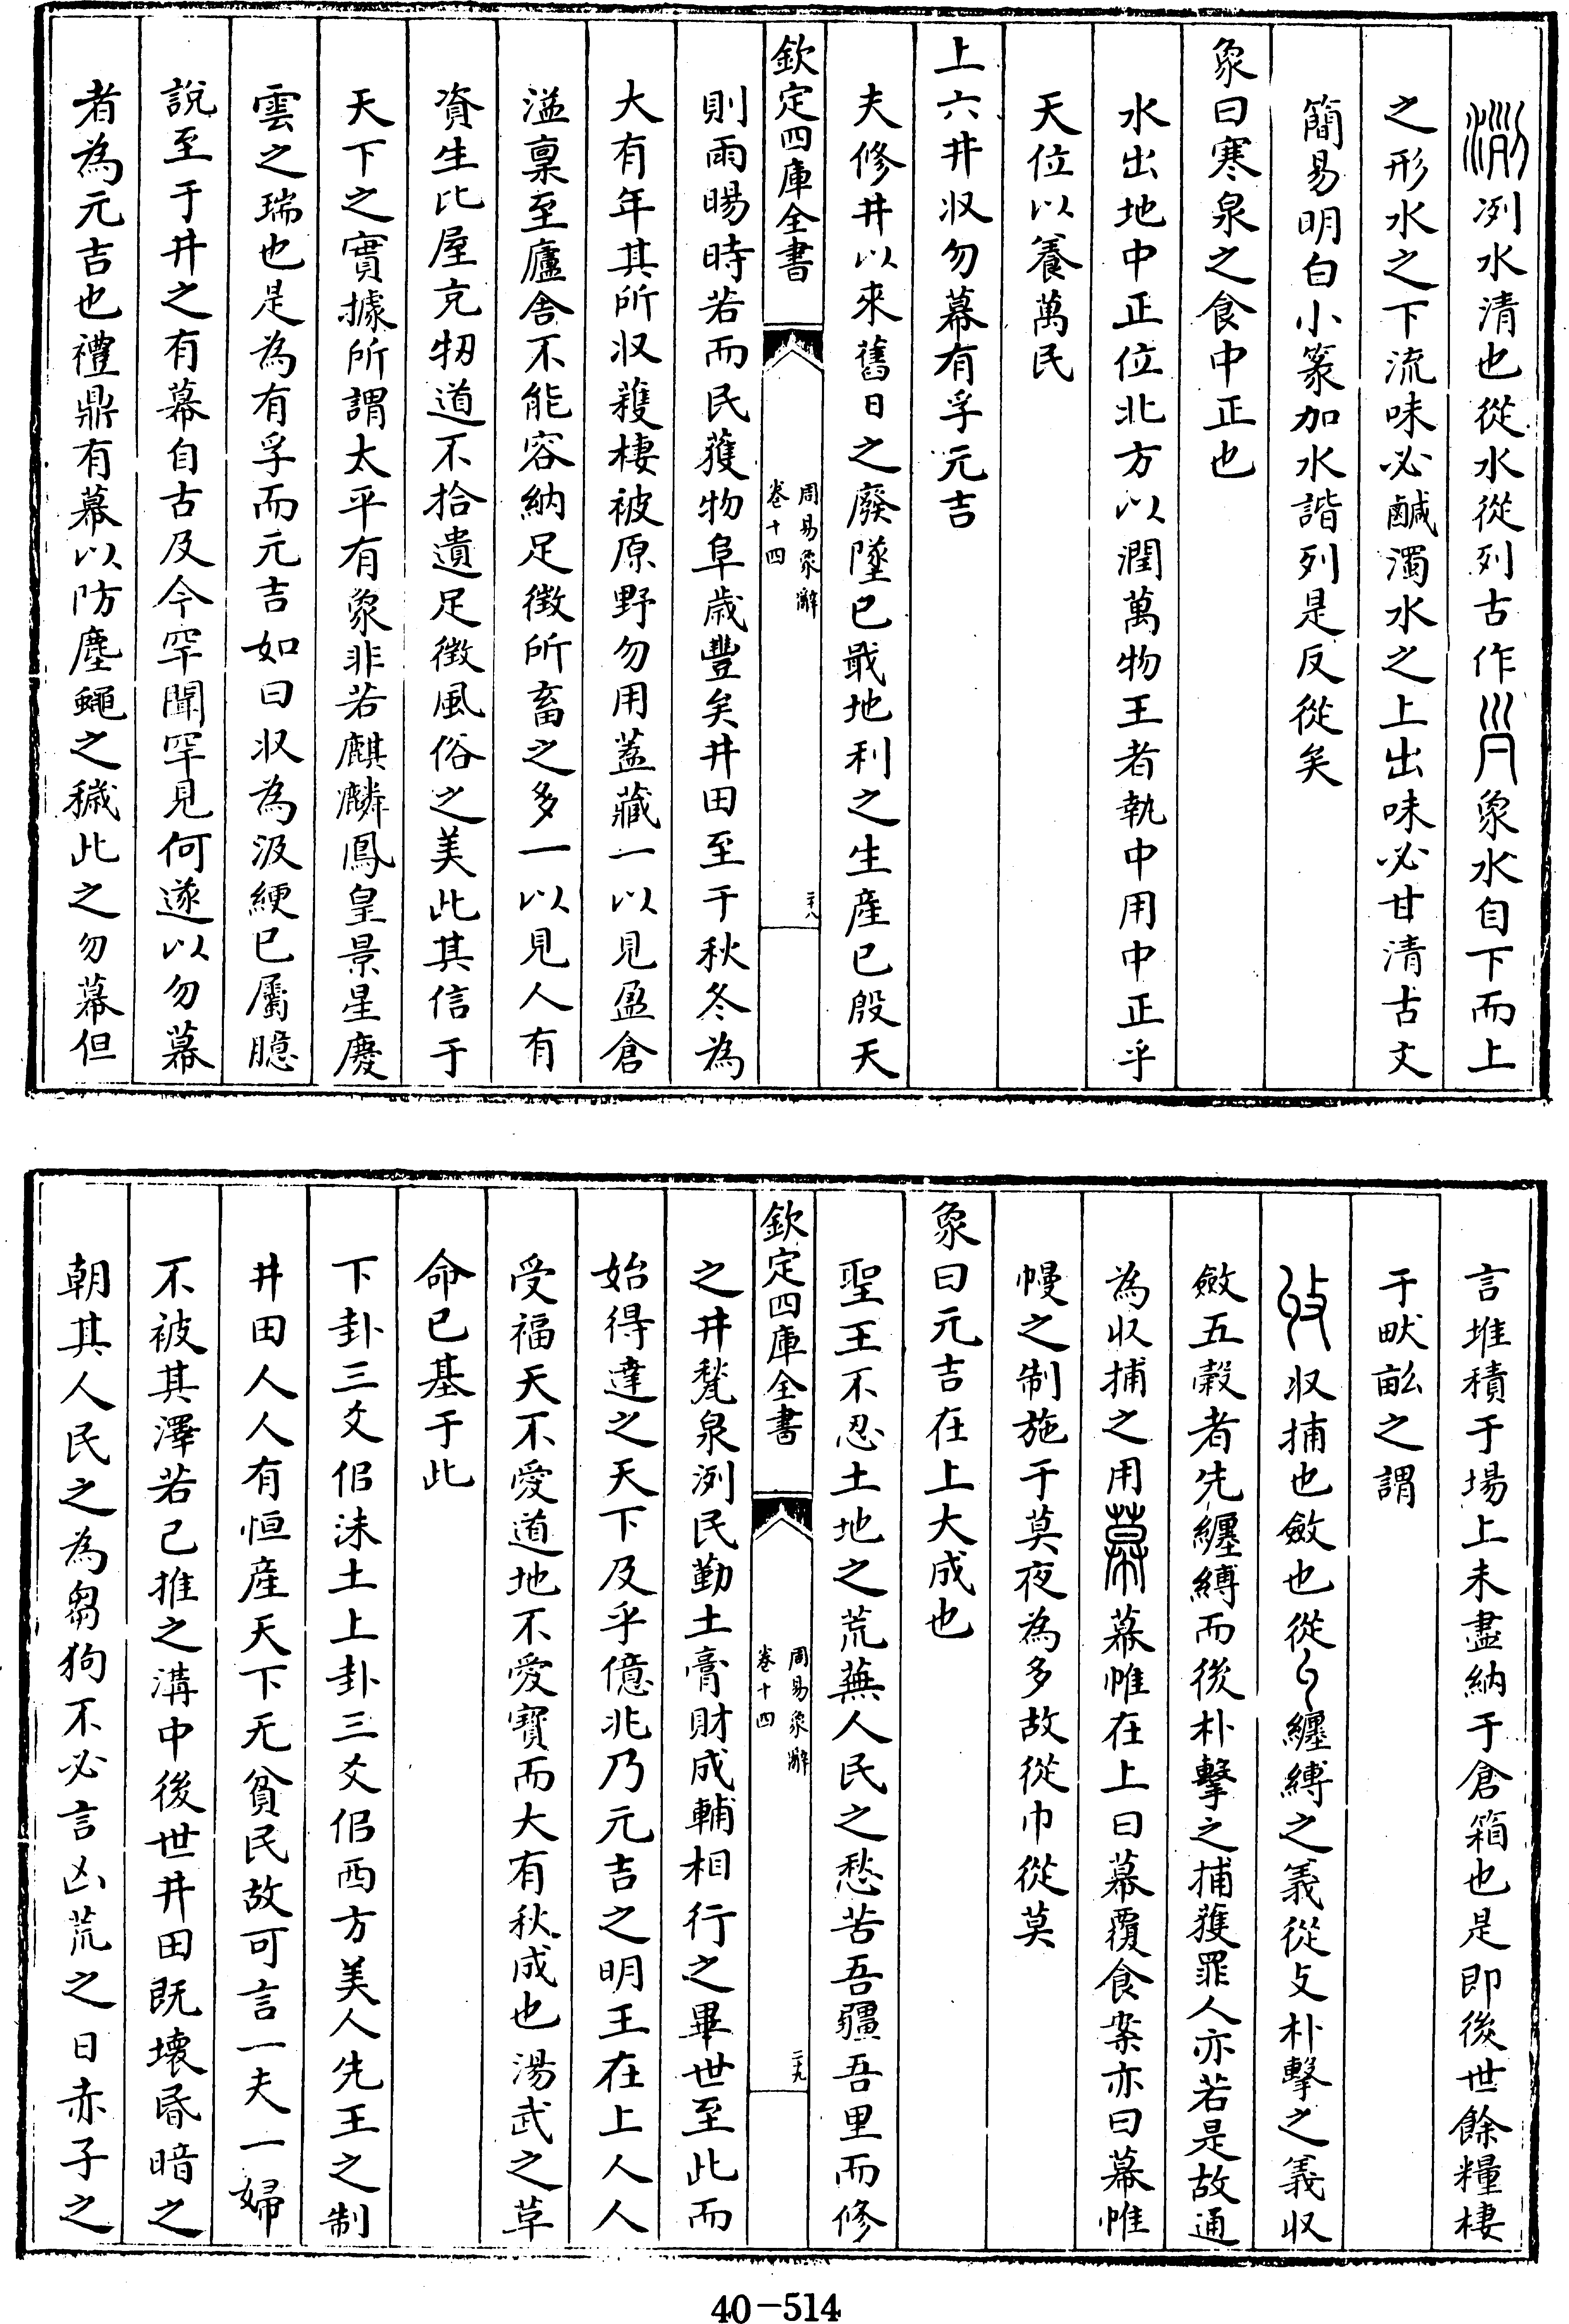 洌水清也從水從列古作象水自下而上
之形水之下流味必鹹濁水之上出味必甘清古文
簡易明白小篆加水諧列是反從矣
象曰寒泉之食中正也
水出地中正位北方以潤萬物王者執中用中正乎
天位以養萬民
上六井收勿幕有孚元吉
夫修井以來舊日之廢墜已戢地利之生產已殷天
欽定四庫全書
周易象辭
卷十四
二十八
則雨暘時若而民獲物阜歲豐矣井田至于秋冬為
大有年其所收穫棲被原野勿用蓋藏一以見盈倉
溢稟至廬舍不能容納足徵所畜之多一以見人有
資生比屋充牣道不拾遺足徵風俗之美此其信于
天下之實據所謂太平有象非若麒麟鳳皇景星慶
雲之瑞也是為有孚而元吉如曰收為汲綆已屬臆
說至于井之有幕自古及今罕聞罕見何遂以勿幕
者為元吉也禮鼎有幕以防塵蠅之穢此之勿幕但
言堆積于場上未盡納于倉箱也是即後世餘糧棲
于畎畝之謂
收捕也斂也從纏縛之義從攴朴擊之義收
斂五穀者先纏縛而後朴擊之捕獲罪人亦若是故通
為收捕之用幕帷在上曰幕覆食案亦曰幕帷
幔之制施于莫夜為多故從巾從莫
象曰元吉在上大成也
聖王不忍土地之荒蕪人民之愁苦吾疆吾里而修
欽定四庫全書
周易象辭
卷十四
二十九
之井甃泉洌民勤土膏財成輔相行之畢世至此而
始得達之天下及乎億兆乃元吉之明王在上人人
受福天不愛道地不愛寶而大有秋成也湯武之草
命已基于此
下卦三爻侣沬土上卦三爻侣西方美人先王之制
井田人人有恒產天下无貧民故可言一夫一婦
不被其澤若己推之溝中後世井田既壞昏暗之
朝其人民之為芻狗不必言凶荒之日赤子之
40-514